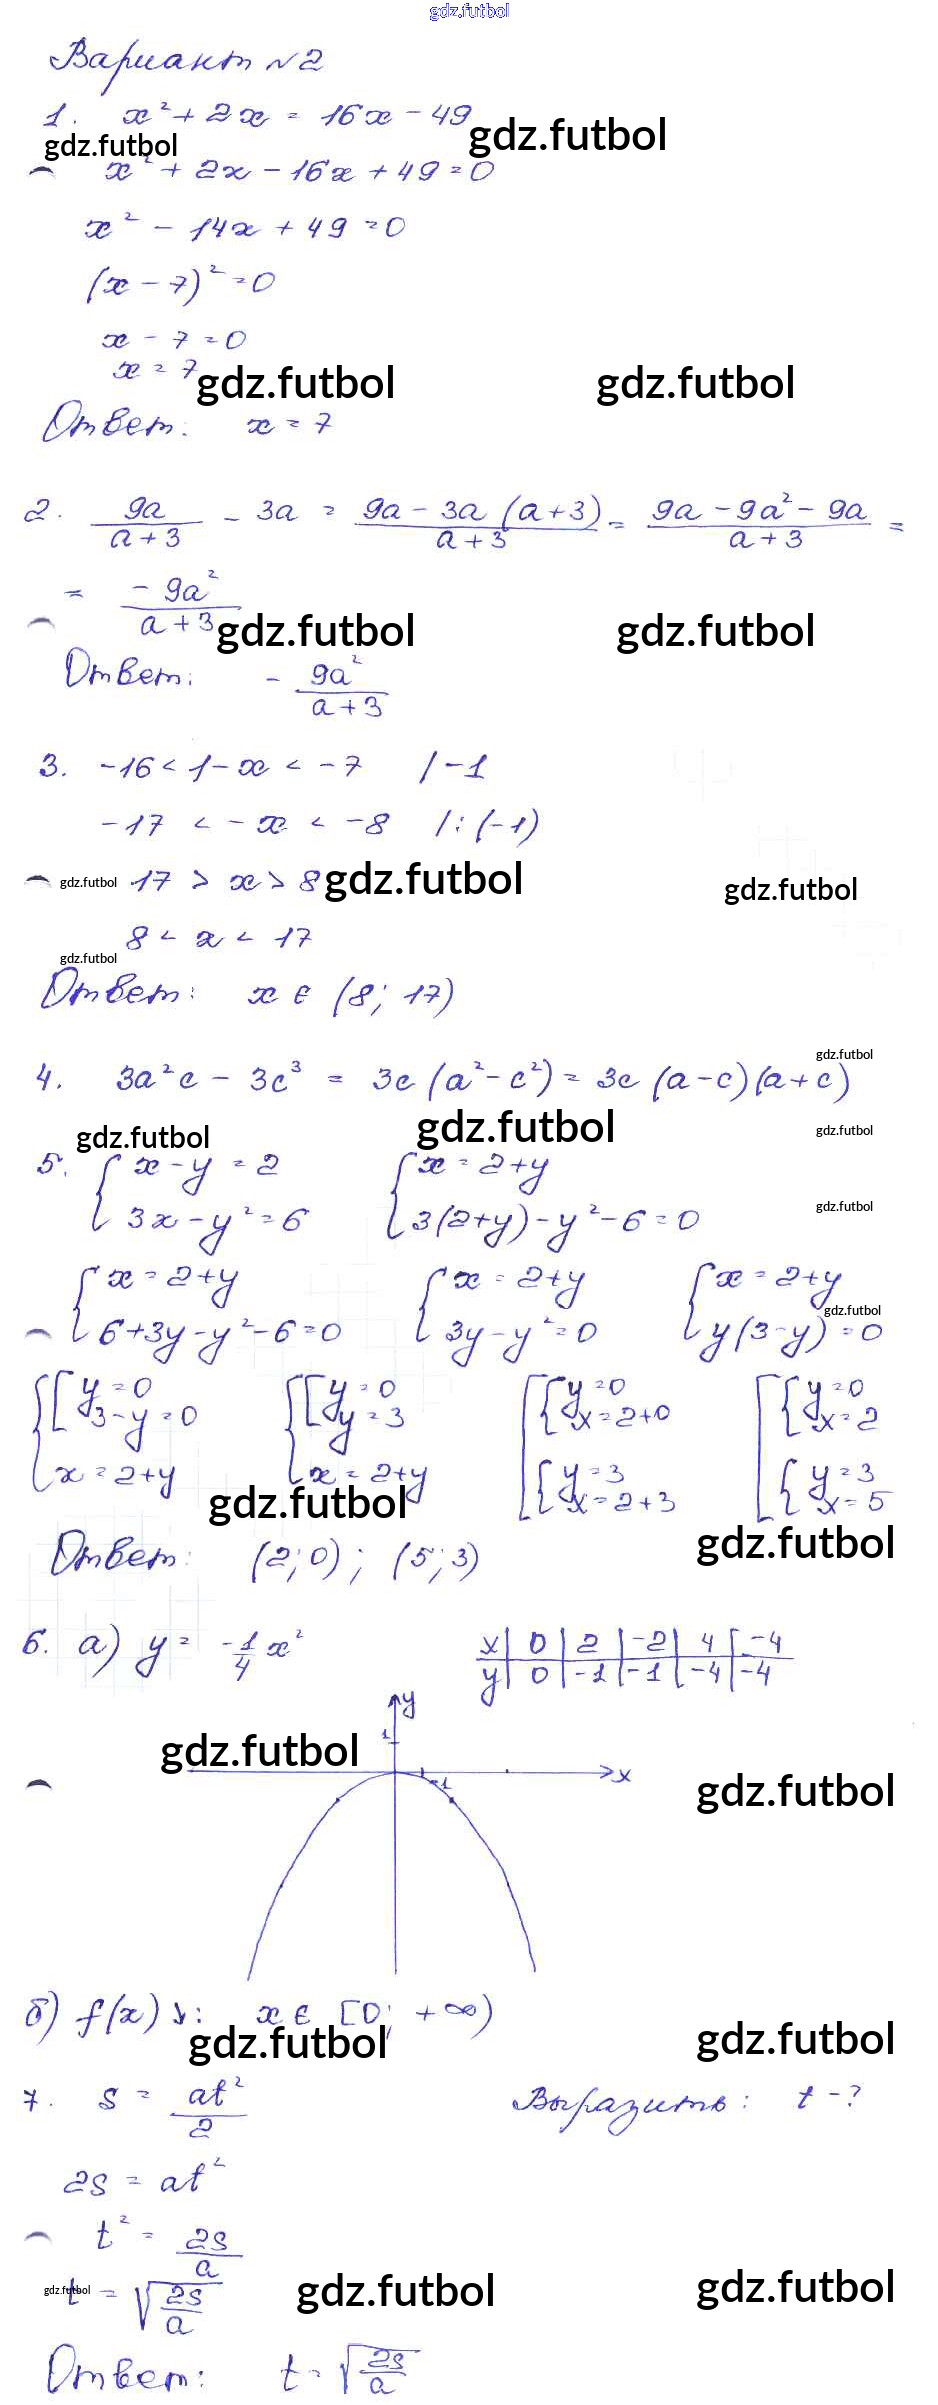 gdz.futbol
Вариант №2
1. x² + 2x = 16x - 49
gdz.futbol
gdz.futbol
x² + 2x - 16x + 49 = 0
x² - 14x + 49 = 0
(x - 7)² = 0
x - 7 = 0
x = 7
gdz.futbol gdz.futbol
Ответ: x = 7
2. 9a/(a+3) - 3a = (9a - 3a(a+3))/(a+3) = (9a - 9a² - 9a)/(a+3) =
= -9a²/(a+3)
gdz.futbol gdz.futbol
Ответ: - 9a²/(a+3)
3. -16 < 1 - x < -7 /-1
-17 < -x < -8 /:(-1)
gdz.futbol 17 > x > 8 gdz.futbol gdz.futbol
8 < x < 17
gdz.futbol
Ответ: x ∈ (8; 17)
gdz.futbol
4. 3a²c - 3c³ = 3c(a² - c²) = 3c(a-c)(a+c)
gdz.futbol gdz.futbol gdz.futbol
5. { x - y = 2 { x = 2+y
{ 3x - y² = 6 { 3(2+y) - y² - 6 = 0
gdz.futbol
{ x = 2+y { x = 2+y { x = 2+y
gdz.futbol
{ 6+3y-y²-6=0 { 3y-y²=0 { y(3-y)=0
{ [ y=0 { [ y=0 [ { y=0 [ { y=0
3-y=0 y=3 x=2+0 x=2
x=2+y x=2+y { y=3 { y=3
x=2+3 x=5
gdz.futbol gdz.futbol
Ответ: (2; 0); (5; 3)
6. а) y = -1/4 x²
x | 0 | 2 | -2 | 4 | -4
y | 0 | -1 | -1 | -4 | -4
y
1
gdz.futbol
x
1
gdz.futbol
б) f(x) ↘: x ∈ [0; +∞)
gdz.futbol gdz.futbol
7. s = at²/2 Выразить: t - ?
2s = at²
t² = 2s/a
gdz.futbol t = √(2s/a) gdz.futbol gdz.futbol
Ответ: t = √(2s/a)